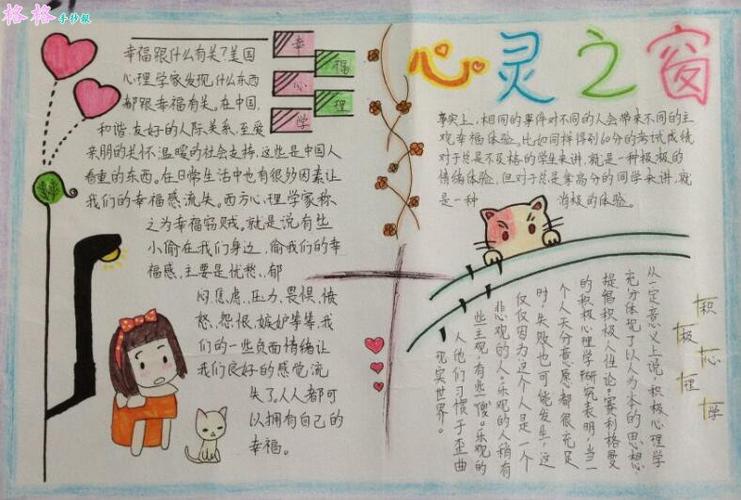 格格手抄报
幸
福
心
理
学
幸福跟什么有关?美国
心理学家发现,什么东西
都跟幸福有关。在中国,
和谐、友好的人际关系,至爱
亲朋的关怀,温暖的社会支持,这些是中国人
看重的东西。在日常生活中也有很妙因素让
我们的幸福感流失。西方心理学家称
之为幸福窃贼,就是说有些
小偷在我们身边,偷我们的幸
福感,主要是忧愁、郁
闷、焦虑、压力、畏惧、愤
怒、怨恨、嫉妒等等,我
们的一些负面情绪让
我们良好的感觉流
失了,人人都可
以拥有自己的
幸福。
心灵之窗
事实上,相同的事件对不同的人会带来不同的主
观幸福体验。比如同样得到60分的考试成绩
对于总是不及格的学生来讲,就是一种极极的
情绪体验,但对于总是拿高分的同学来讲,就
是一种 消极的体验。
积
极
心
理
学
从一定意义上说,积极心理学
充分体现了以人为本的思想,
提倡积极人性论。赛利格曼
的积极心理学研究表明,当一
个人大分意愿都很充足
时,失败也可能发生,这
仅仅因为这个人是一个
悲观的人。乐观的人稍有
些主观,有些"傻"。乐观的
人他们习惯于歪曲
现实世界。